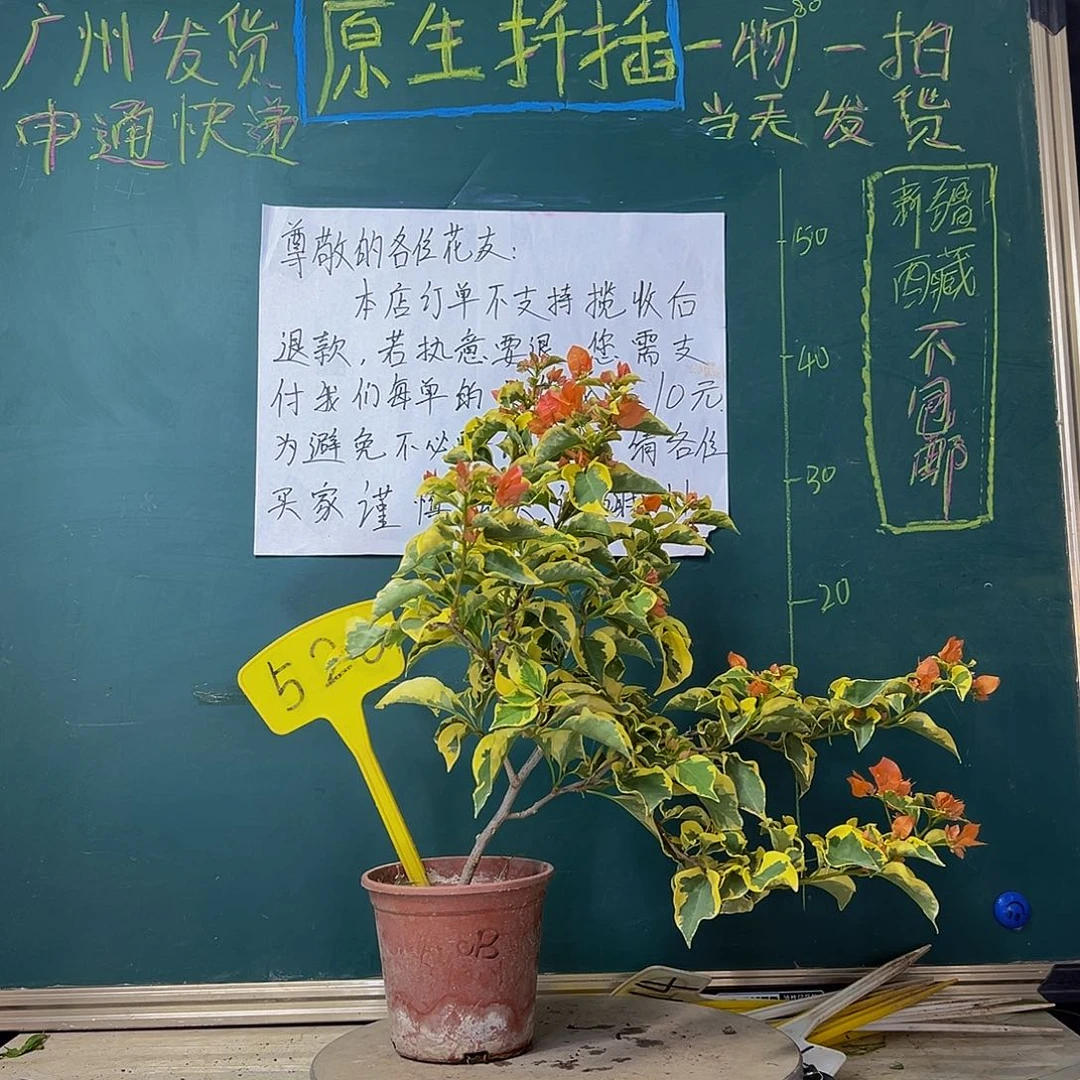 广州发货
申通快递
原生扦插
一物一拍
当天发货
新疆
西藏
不包邮
50
40
30
20
尊敬的各位花友:
本店订单不支持揽收后
退款,若执意要退 您需支
付我们每单的 10元.
为避免不必 各位
买家谨慎
52